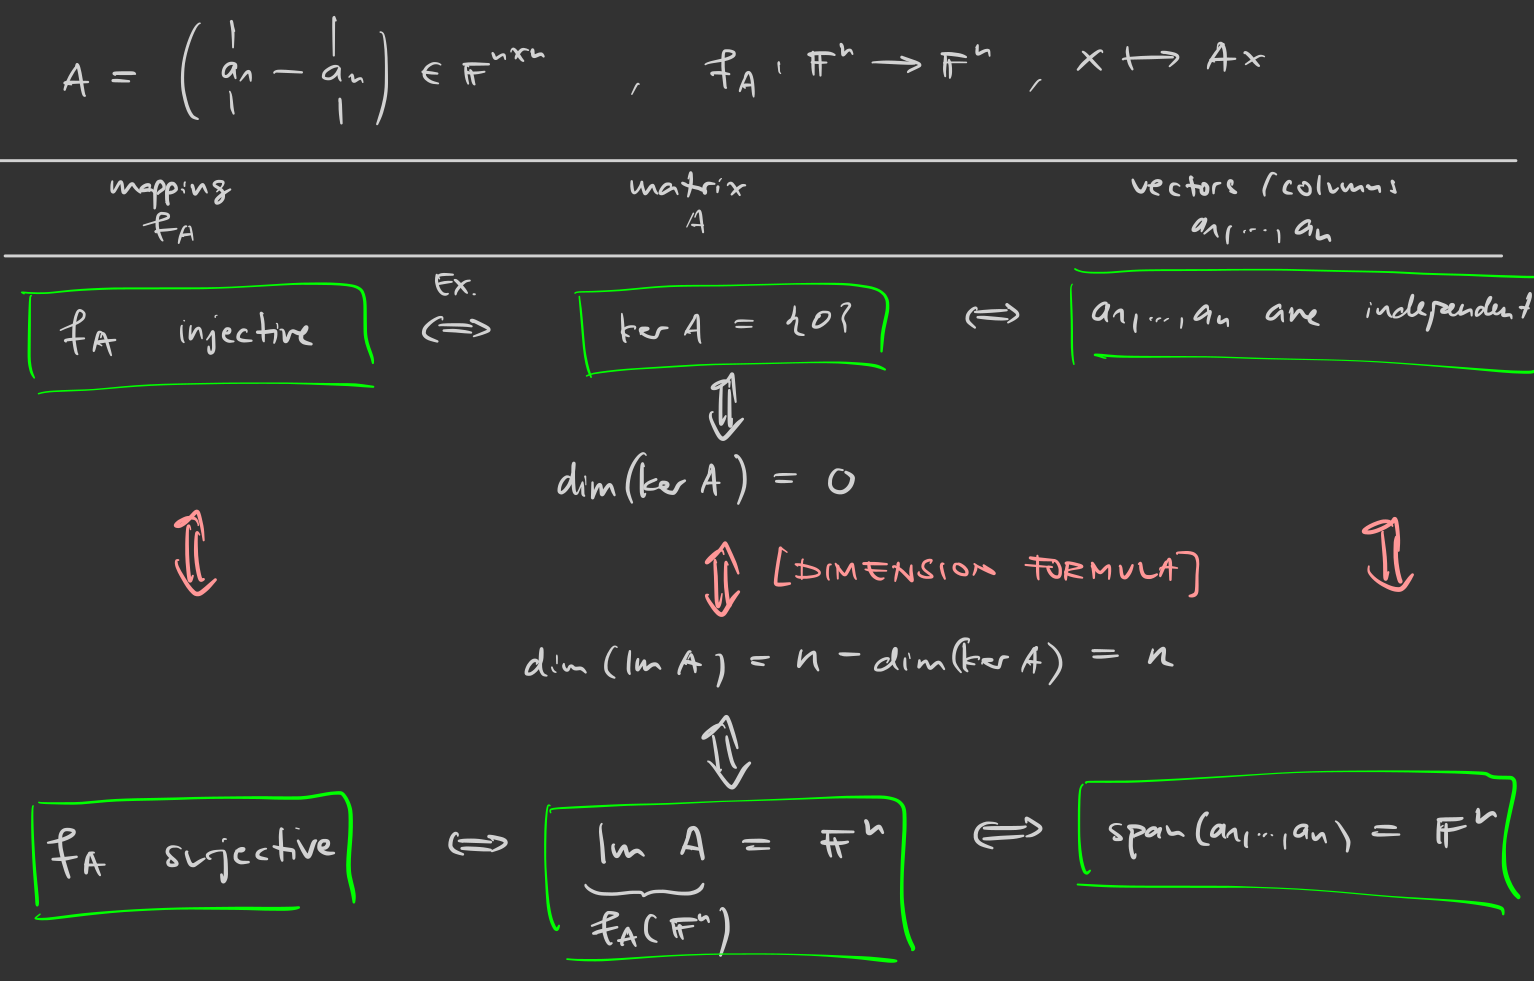 A = ( a₁ — aₙ ) ∈ 𝔽ⁿˣⁿ , f_A : 𝔽ⁿ → 𝔽ⁿ , x ↦ Ax
mapping matrix vectors / columns
f_A A a₁, ..., aₙ
Ex.
f_A injective ⇔ ker A = {0} ⇔ a₁, ..., aₙ are independent
⇕
dim(ker A) = 0
⇕ ⇕ [DIMENSION FORMULA] ⇕
dim (Im A) = n - dim(ker A) = n
⇕
f_A surjective ⇔ Im A = 𝔽ⁿ ⇔ span(a₁, ..., aₙ) = 𝔽ⁿ
f_A(𝔽ⁿ)